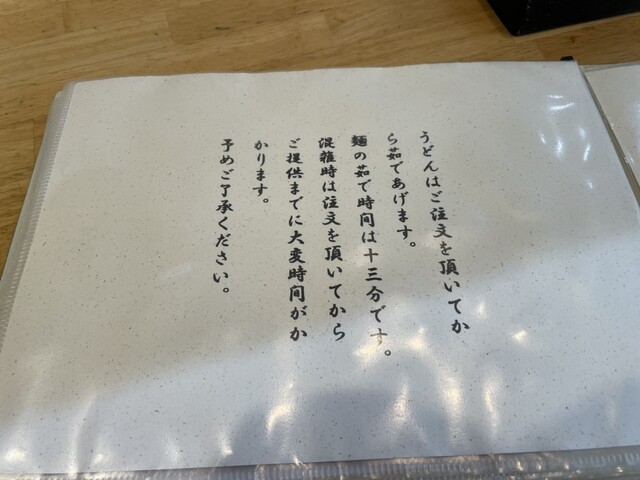 うどんはご注文を頂いてか
ら茹であげます。
麺の茹で時間は十三分です。
混雑時は注文を頂いてから
ご提供までに大変時間がか
かります。
予めご了承ください。